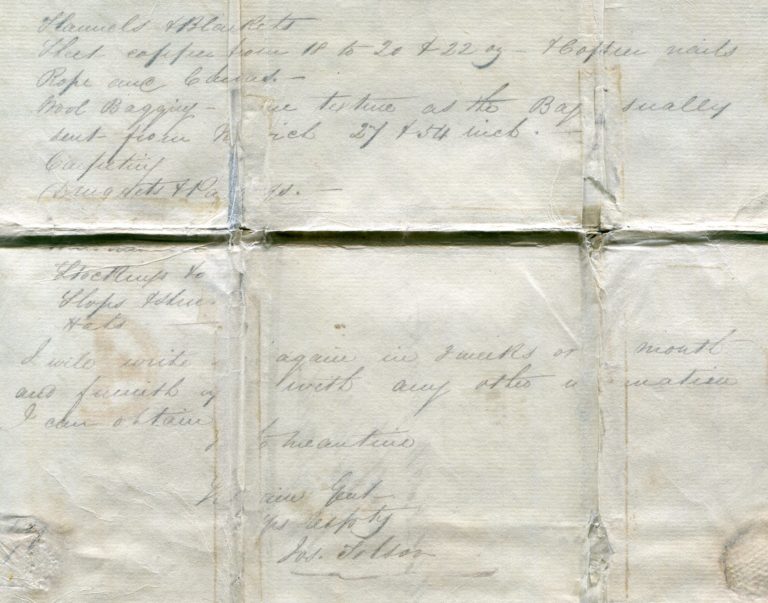 Flannels & Blankets
Sheet copper from 18 to 20 & 22 oz – & Copper nails
Rope and Canvas. –
Wool Bagging – texture as the Bag sually
sent from ich 27 & 54 inch. –
Carpeting
Druggets & s. –
Stockings &
Slops & shoe
Hats
I will write again in 3 weeks or month
and furnish y with any other mation
I can obtain
meantime
Gent
Jos. Tolson